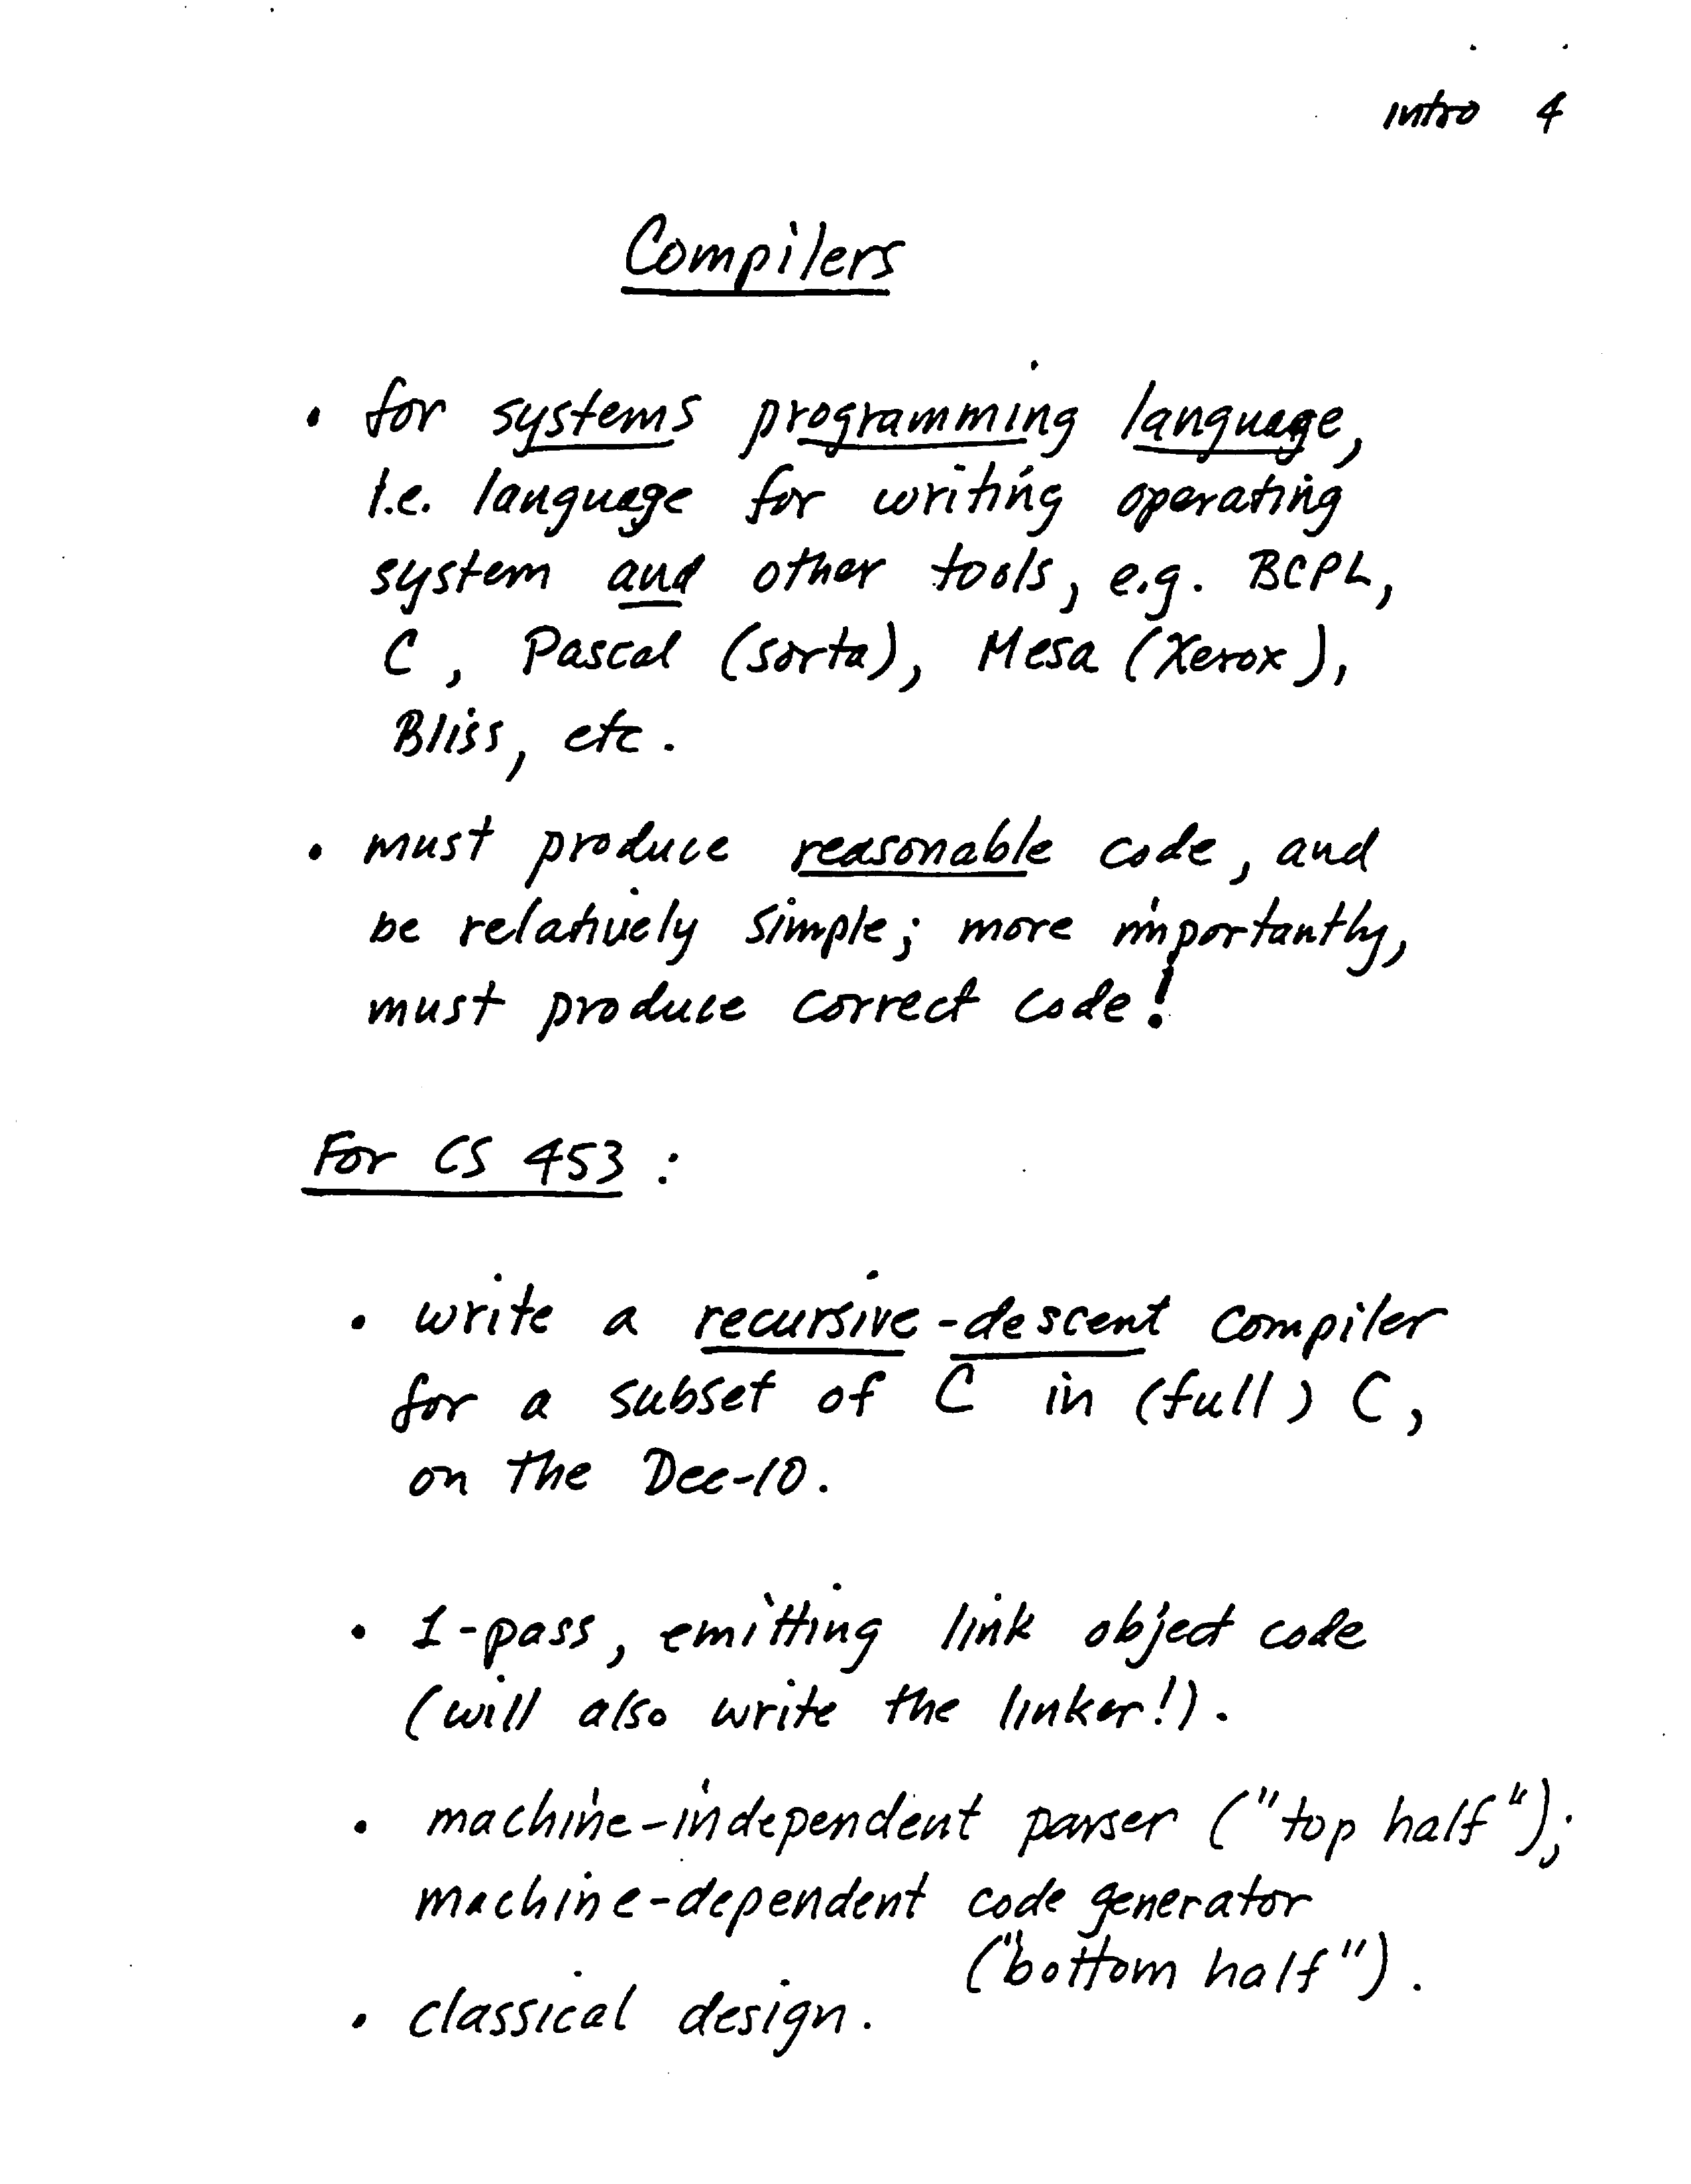 Intro 4
Compilers
• for systems programming language,
I.e. language for writing operating
system and other tools, e.g. BCPL,
C, Pascal (sorta), Mesa (Xerox),
Bliss, etc.
• must produce reasonable code, and
be relatively simple; more importantly,
must produce correct code!
For CS 453:
• write a recursive-descent compiler
for a subset of C in (full) C,
on the Dec-10.
• 1-pass, emitting link object code
(will also write the linker!).
• machine-independent parser ("top half");
machine-dependent code generator
("bottom half").
• classical design.